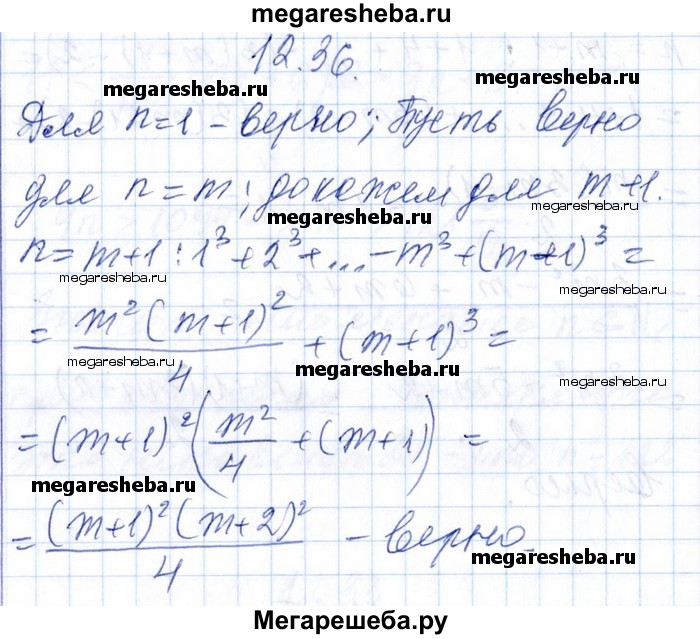 megaresheba.ru
12.36.
megaresheba.ru megaresheba.ru
Для n=1 – верно; Пусть верно
для n=m; докажем для m+1.
megaresheba.ru megaresheba.ru
n=m+1: 1³+2³+...–m³+(m+1)³=
megaresheba.ru megaresheba.ru
= m²(m+1)²/4 + (m+1)³ =
megaresheba.ru megaresheba.ru megaresheba.ru
= (m+1)²(m²/4 + (m+1)) =
megaresheba.ru megaresheba.ru
= (m+1)²(m+2)²/4 – верно.
megaresheba.ru
Мегарешеба.ру